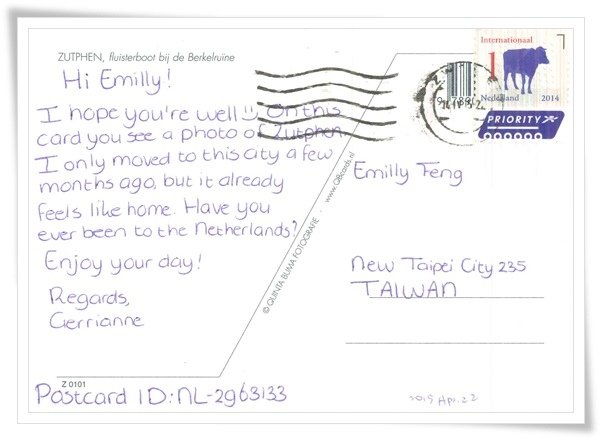 ZUTPHEN, fluisterboot bij de Berkelruïne
Hi Emilly!
I hope you're well :) On this
card you see a photo of Zutphen.
I only moved to this city a few
months ago, but it already
feels like home. Have you
ever been to the Netherlands?
Enjoy your day!
Regards,
Gerrianne
Z 0101
Postcard ID: NL-2963133
© QUINTA BUMA FOTOGRAFIE · www.QBcards.nl
Internationaal
1
Nederland 2014
PRIORITY
Emilly Feng
New Taipei City 235
TAIWAN
2015 Apr. 22